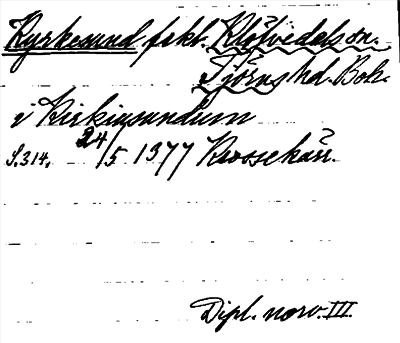 Kyrkesund fskt. Klövedals sn.
Tjörns hd. Boh.
i Kirkiusundum
S. 314. 24/5 1377 Krossekärr.
Dipl. norv. III.